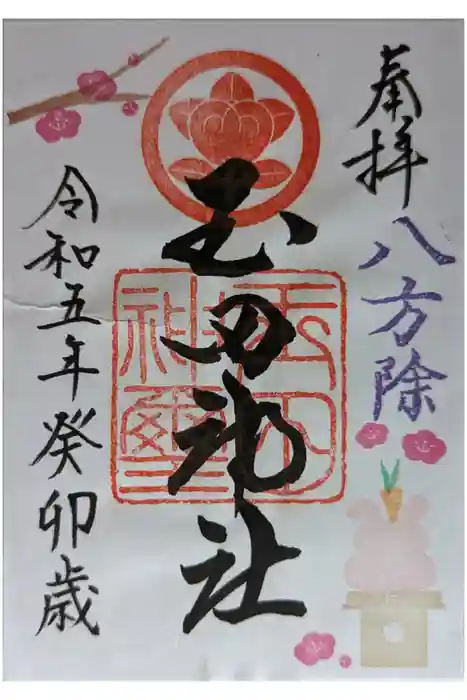 奉拝
八方除
玉田神社
玉田神璽
令和五年癸卯歳